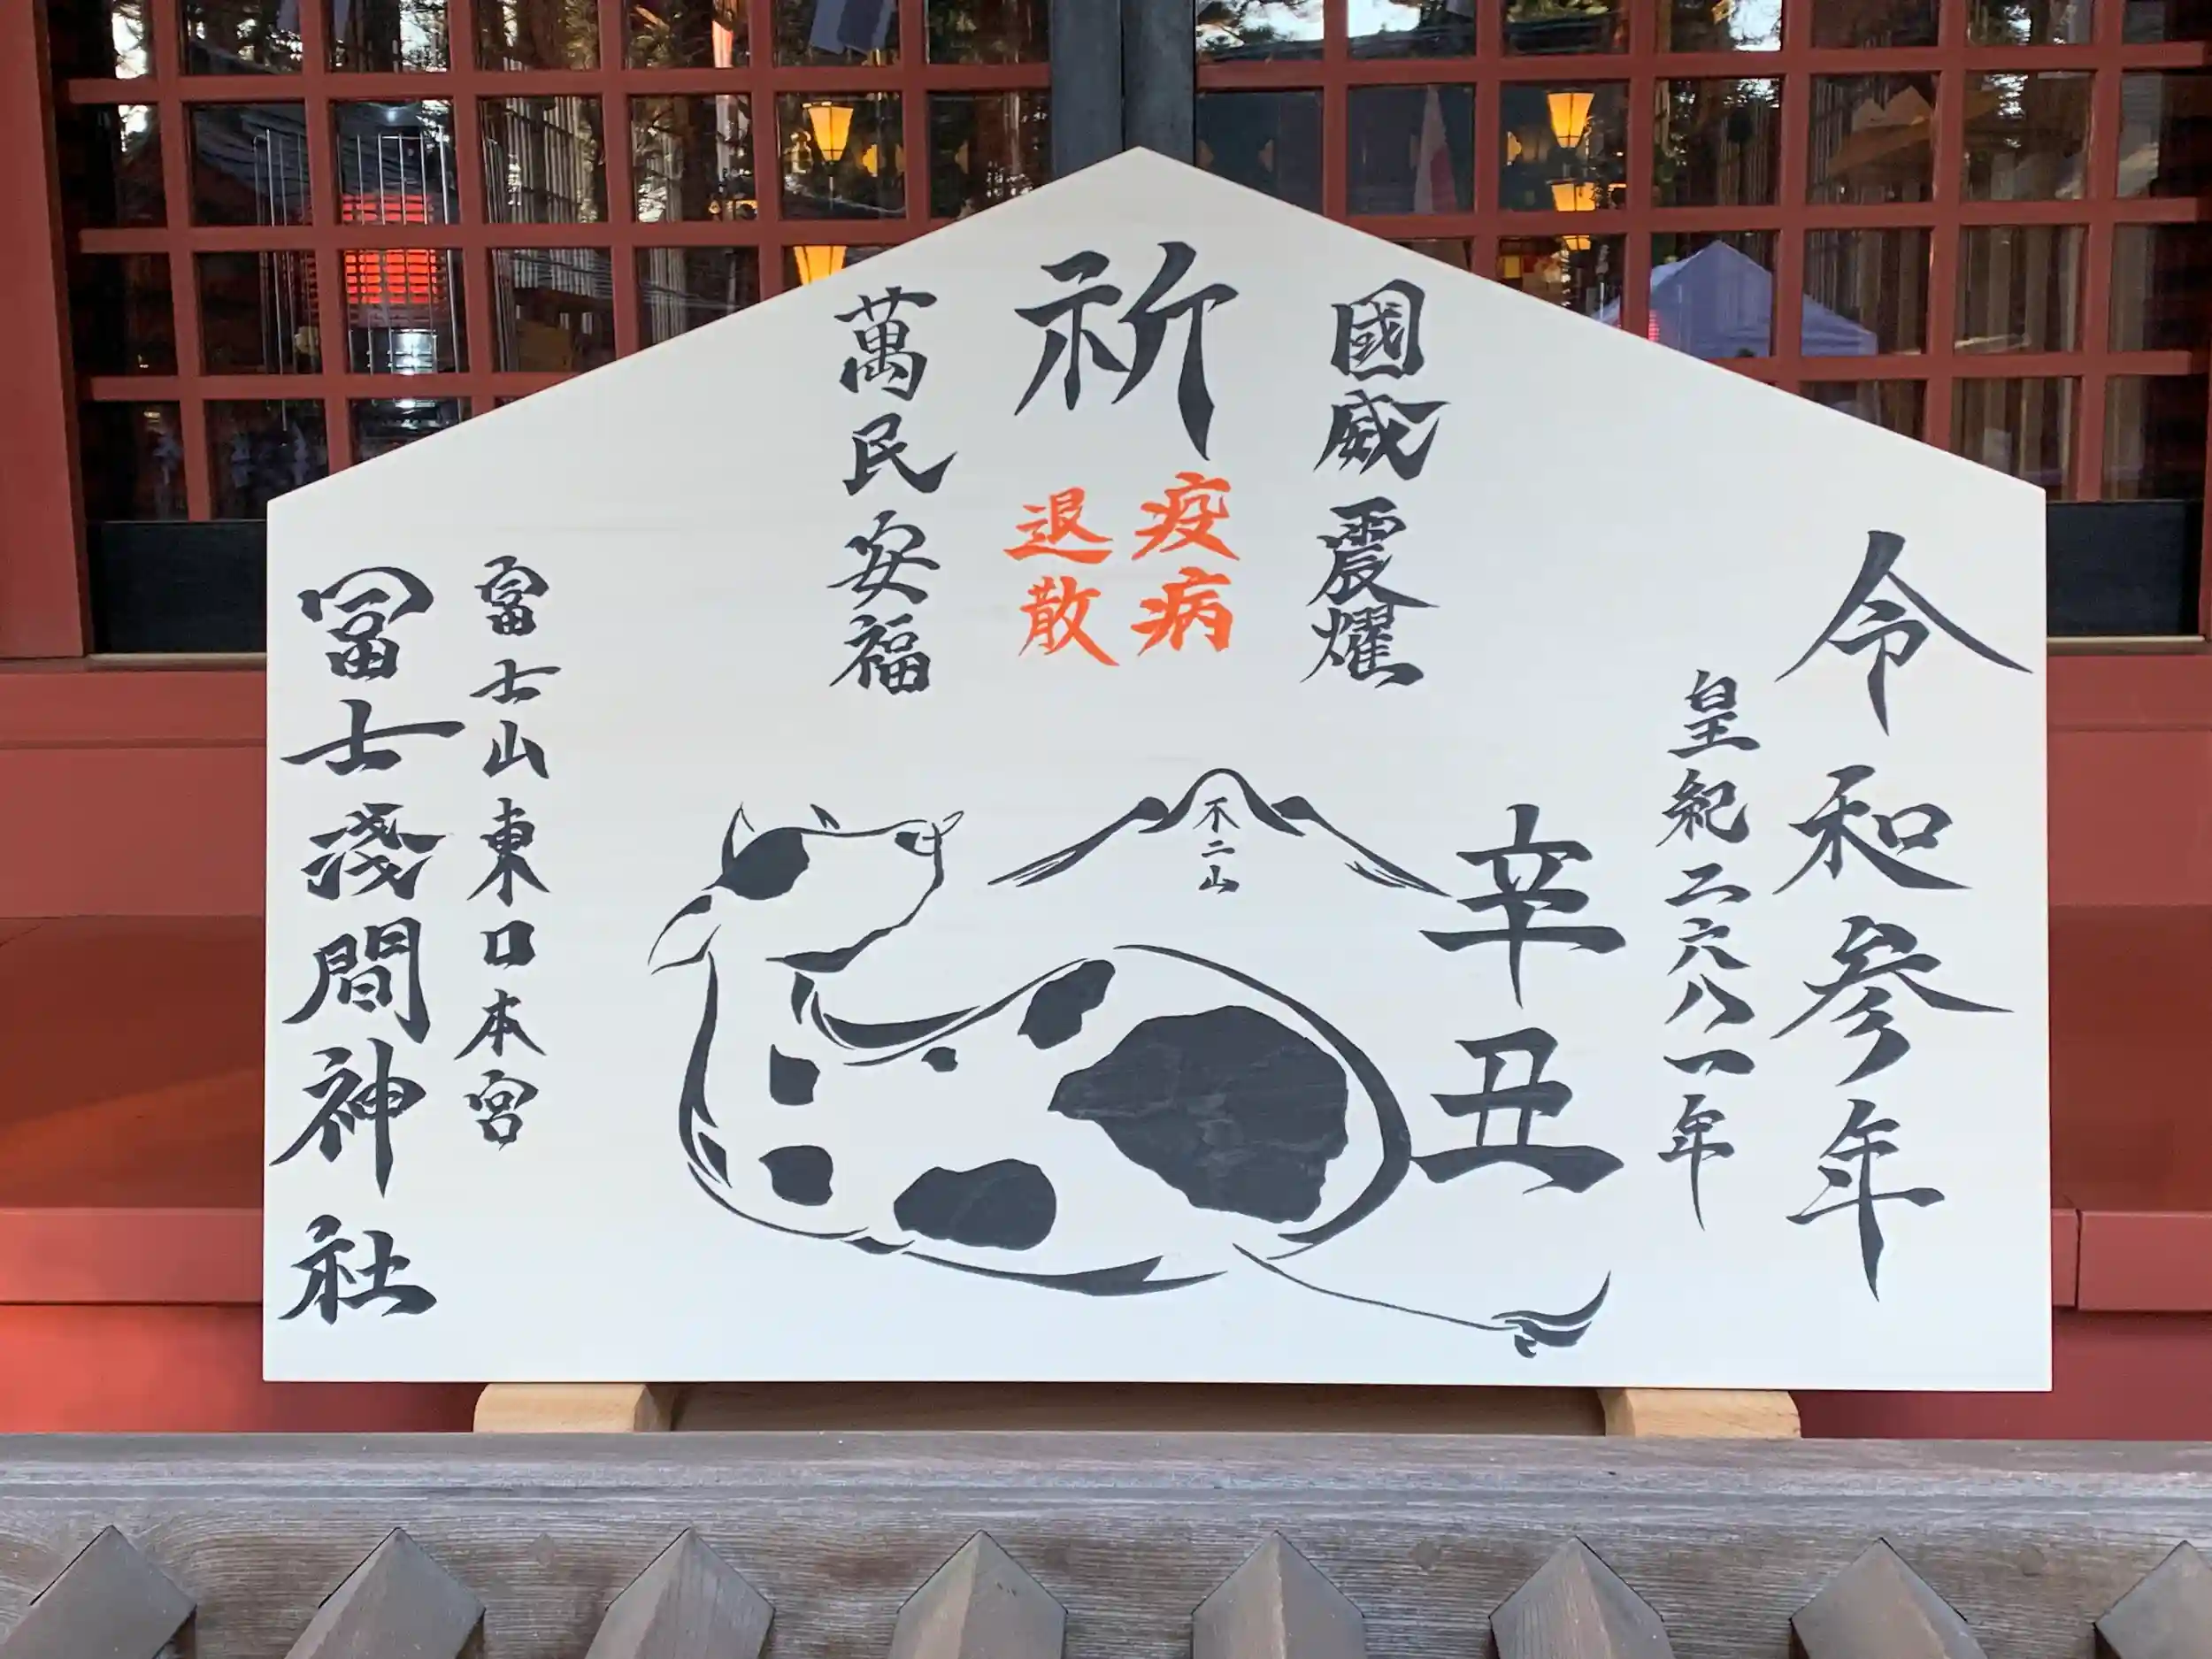 令和参年
皇紀二六八一年
辛丑
國威震燿
祈
疫病
退散
萬民安福
不二山
富士山東口本宮
冨士浅間神社